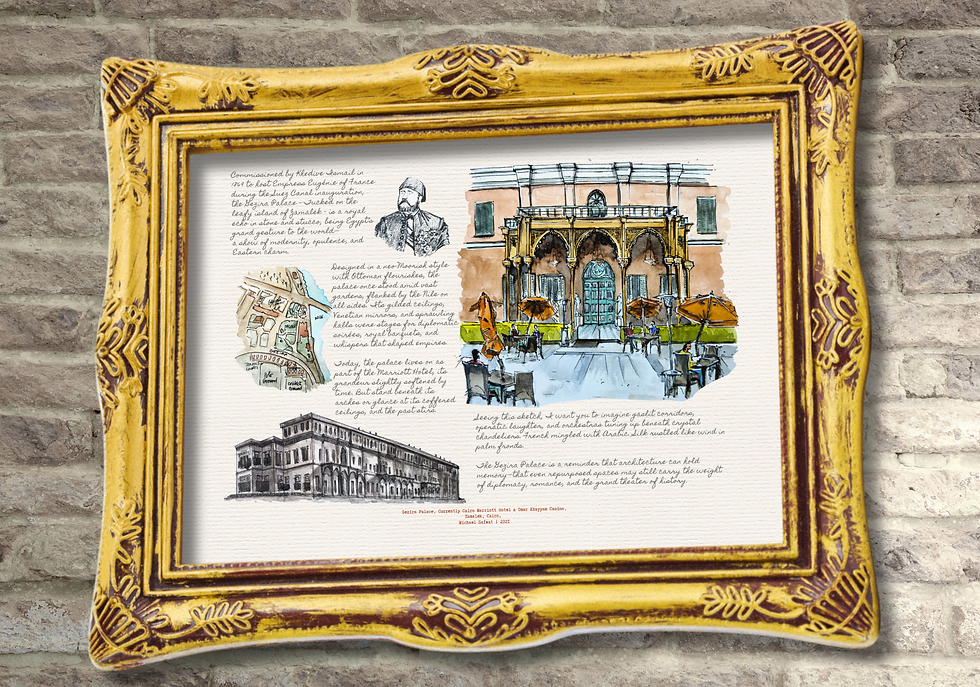 Commissioned by Khedive Ismail in
1869 to host Empress Eugénie of France
during the Suez Canal inauguration,
the Gezira Palace--Tucked on the
leafy island of Zamalek- is a royal
echo in stone and stucco, being Egypt's
grand gesture to the world—
a show of modernity, opulence, and
Eastern charm.
Designed in a neo-Moorish style
with Ottoman flourishes, the
palace once stood amid vast
gardens, flanked by the Nile on
all sides. Its gilded ceilings,
Venetian mirrors, and sprawling
halls were stages for diplomatic
soirées, royal banquets, and
whispers that shaped empires.
Today, the palace lives on as
part of the Marriott Hotel, its
grandeur slightly softened by
time. But stand beneath its
arches or glance at its coffered
ceilings, and the past stirs.
Seeing this sketch, I want you to imagine gaslit corridors,
operatic laughter, and orchestras tuning up beneath crystal
chandeliers. French mingled with Arabic. Silk rustled like wind in
palm fronds.
The Gezira Palace is a reminder that architecture can hold
memory—that even repurposed spaces may still carry the weight
of diplomacy, romance, and the grand theater of history.
Gezira Palace, Currently Cairo Marriott Hotel & Omar Khayyam Casino,
Zamalek, Cairo,
Michael Safwat | 2022